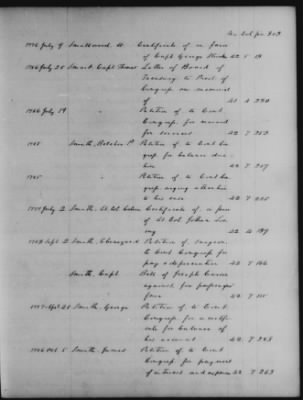 1776 July 9 Smallwood, W Certificate of a pass
of Capt George 22 5 19
1786 July 20 Smart, Capt Letter of Board of
Treasury to Prest. of
Congress on memorial
of 41 9 230
1786 July 19 Petition of to Cont
Congress, for reward
for services 42 7 253
1785 Smith, Petition of to Cont Con
gress for balance due
him 42 7 207
1785 Petition of to Cont Con
gress urging attention
to his case 42 7 205
July 2 Smith, Lt Col Certificate of a pass
of Lt Col
42 4 189
Sept 2 Smith, Ebenezer Petition of surgeon,
to Cont Congress for
pay & depreciation 42 7 166
Smith, Capt Bill of Joseph
against for passenger
fare 42 7 111
28 Smith, George Petition of to Cont
Congress for a certifi
cate for balance of
his account 42 7 263
1786 Oct 5 Smith, James Petition of to Cont
Congress for payment
of interest and 42 7 263